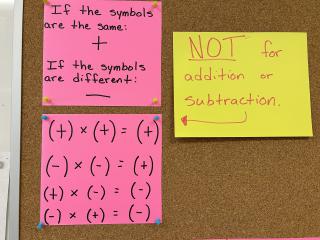 If the symbols
are the same:
+
If the symbols
are different:
—
(+) × (+) = (+)
(-) × (-) = (+)
(+) × (-) = (-)
(-) × (+) = (-)
NOT for
addition or
subtraction.